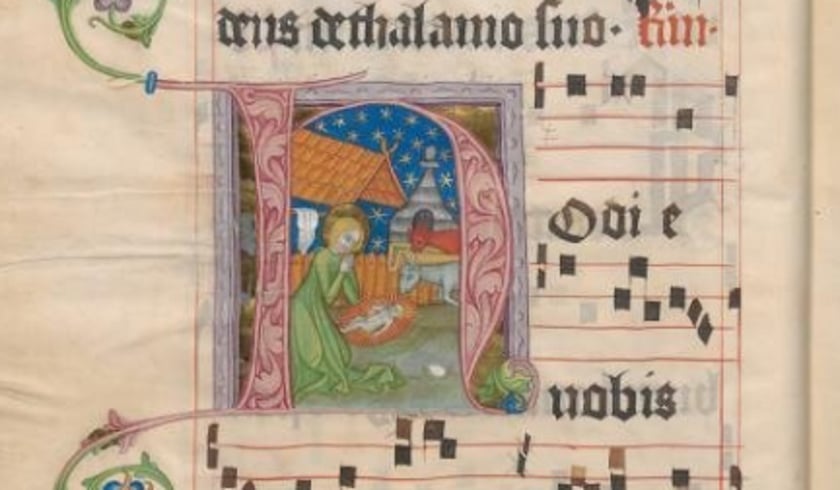 dens dethalamo suo· tim·
H Odi e
nobis